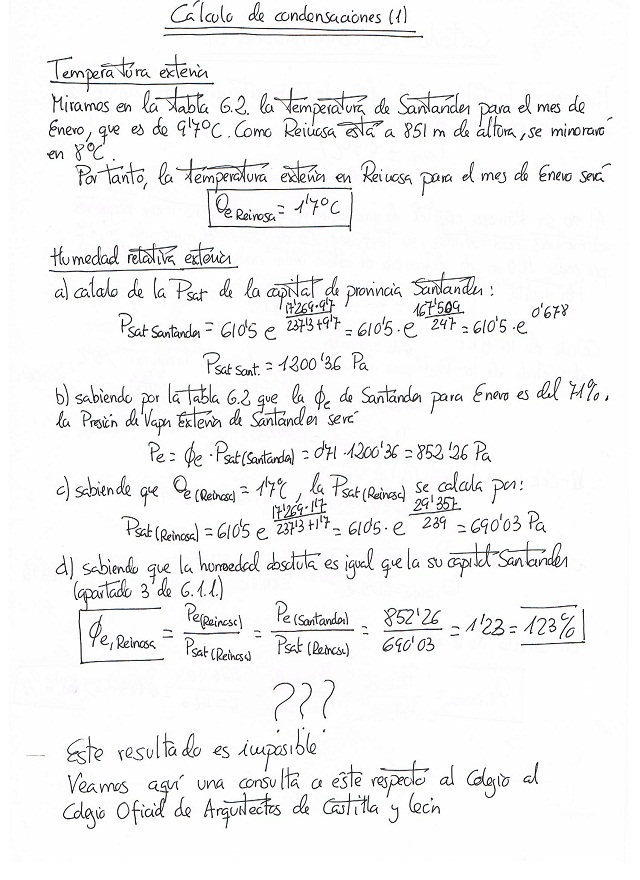 Cálculo de condensaciones (1)
Temperatura exterior
Miramos en la tabla G.2. la temperatura de Santander para el mes de
Enero, que es de 9'7ºC. Como Reinosa está a 851 m de altura, se minorará
en 8ºC.
Por tanto, la temperatura exterior en Reinosa para el mes de Enero será
θe Reinosa = 1'7ºC
Humedad relativa exterior
a) cálculo de la Psat de la capital de provincia Santander:
Psat Santander = 610'5 e^(17'269·9'7 / 237'3+9'7) = 610'5 · e^(167'509 / 247) = 610'5 · e^0'678
Psat Sant. = 1200'36 Pa
b) sabiendo por la tabla G.2 que la φe de Santander para Enero es del 71%,
la Presión de Vapor Exterior de Santander será
Pe = φe · Psat (Santander) = 0'71 · 1200'36 = 852'26 Pa
c) sabiendo que θe (Reinosa) = 1'7ºC, la Psat (Reinosa) se calcula por:
Psat (Reinosa) = 610'5 e^(17'269·1'7 / 237'3+1'7) = 610'5 · e^(29'357 / 239) = 690'03 Pa
d) sabiendo que la humedad absoluta es igual que la su capital Santander
(apartado 3 de G.1.1)
φe, Reinosa = Pe (Reinosa) / Psat (Reinosa) = Pe (Santander) / Psat (Reinosa) = 852'26 / 690'03 = 1'23 = 123%
???
Este resultado es imposible
Veamos aquí una consulta a este respecto al Colegio al
Colegio Oficial de Arquitectos de Castilla y León